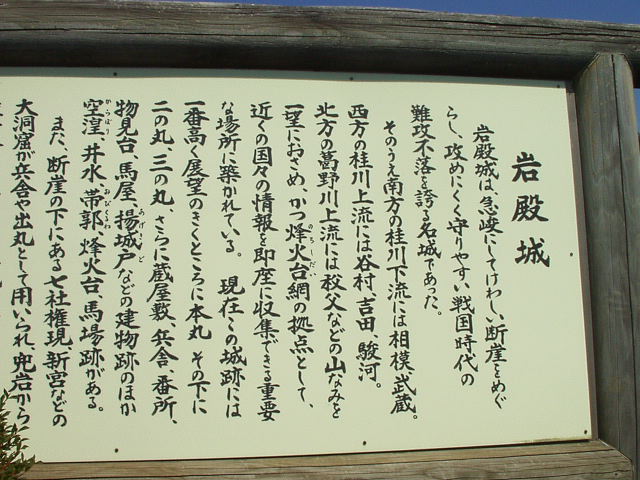 岩殿城
岩殿城は、急峻にしてけわしい断崖をめぐ
らし、攻めにくく守りやすい戦国時代の
難攻不落を誇る名城であった。
そのうえ南方の桂川下流には相模、武蔵。
西方の桂川上流には谷村、吉田、駿河。
北方の葛野川上流には秩父などの山なみを
一望におさめ、かつ烽火台網の拠点として、
のろしだい
近くの国々の情報を即座に収集できる重要
な場所に築かれている。 現在この城跡には
一番高く展望のきくところに本丸 その下に
二の丸、三の丸、さらに蔵屋敷、兵舎、番所、
物見台、馬屋、揚城戸などの建物跡のほか
あげきど
空湟、井水、帯郭、烽火台、馬場跡がある。
からぼり
おびくるわ
また、断崖の下にある七社権現、新宮などの
大洞窟が兵舎や出丸として用いられ、兜岩から